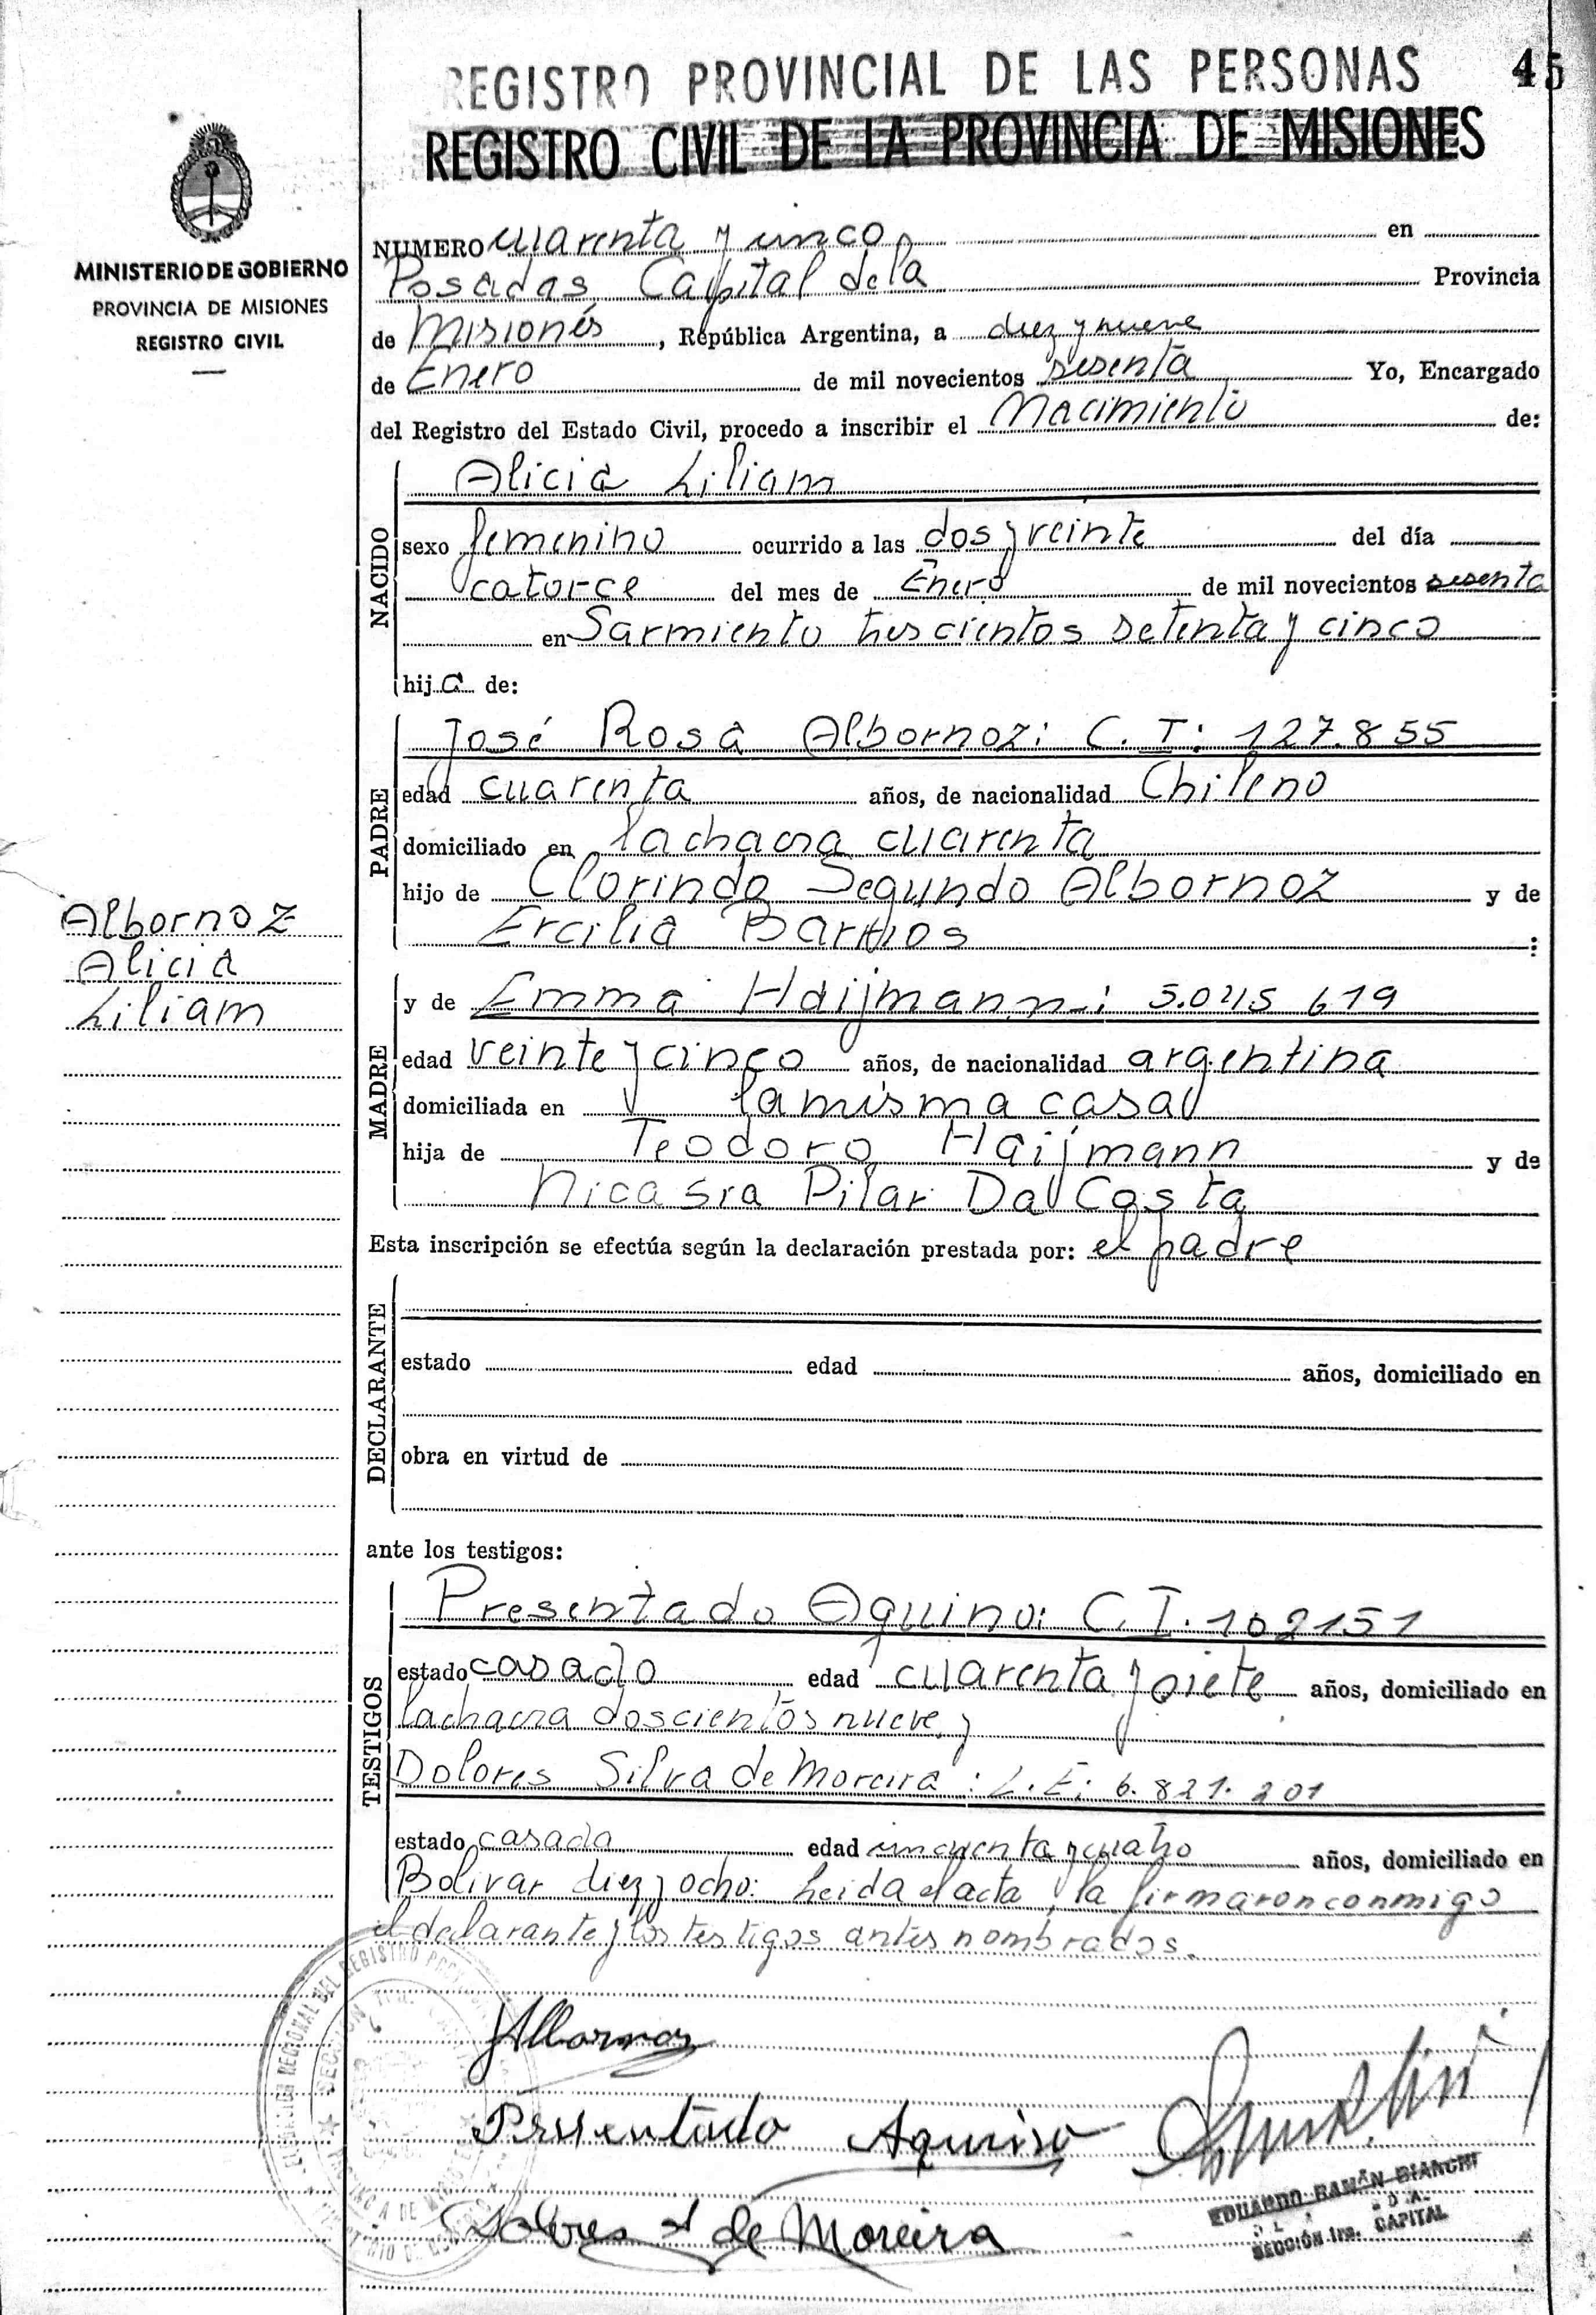 REGISTRO PROVINCIAL DE LAS PERSONAS 45
REGISTRO CIVIL DE LA PROVINCIA DE MISIONES
MINISTERIO DE GOBIERNO
PROVINCIA DE MISIONES
REGISTRO CIVIL
NUMERO cuarenta y cinco en
Posadas Capital de la Provincia
de Misiones, República Argentina, a diez y nueve
de Enero de mil novecientos sesenta Yo, Encargado
del Registro del Estado Civil, procedo a inscribir el Nacimiento de:
NACIDO
Alicia Liliam
sexo femenino ocurrido a las dos y veinte del día
catorce del mes de Enero de mil novecientos sesenta
en Sarmiento trescientos setenta y cinco
hija de:
PADRE
José Rosa Albornoz: C. I: 127.855
edad cuarenta años, de nacionalidad Chileno
domiciliado en la chacra cuarenta
hijo de Clorindo Segundo Albornoz y de
Ercilia Barrios :
Albornoz
Alicia
Liliam
MADRE
y de Emma Haijmann: 5.045 619
edad veinte y cinco años, de nacionalidad argentina
domiciliada en la misma casa
hija de Teodoro Haijmann y de
Nicasia Pilar Da Costa
Esta inscripción se efectúa según la declaración prestada por: el padre
DECLARANTE
estado edad años, domiciliado en
obra en virtud de
ante los testigos:
TESTIGOS
Presentado Aquino: C. I. 102151
estado casado edad cuarenta y siete años, domiciliado en
la chacra doscientos nueve y
Dolores Silva de Moreira: L. E: 6.821.201
estado casada edad cincuenta y cuatro años, domiciliado en
Bolivar diez y ocho: Leida el acta, la firmaron conmigo
el declarante y los testigos antes nombrados.
JAlbornoz
Presentado Aquino
Dolores S de Moreira
EDUARDO RAMÓN BIANCHI
SECCIÓN 1ra. CAPITAL